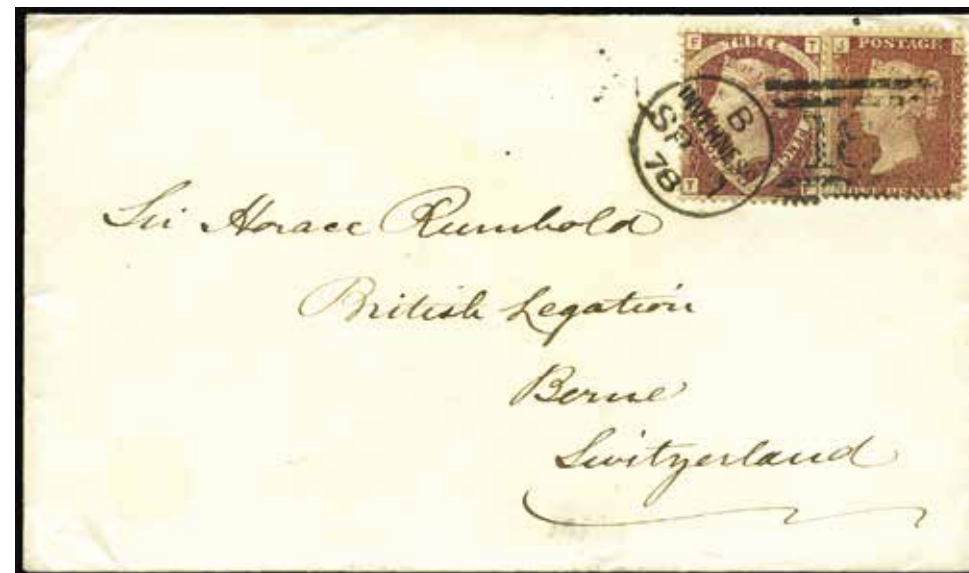 F THREE T
J POSTAGE
B
INVERNESS
SP
78
PENCE
ONE PENNY
Sir Horace Rumbold
British Legation
Berne
Switzerland